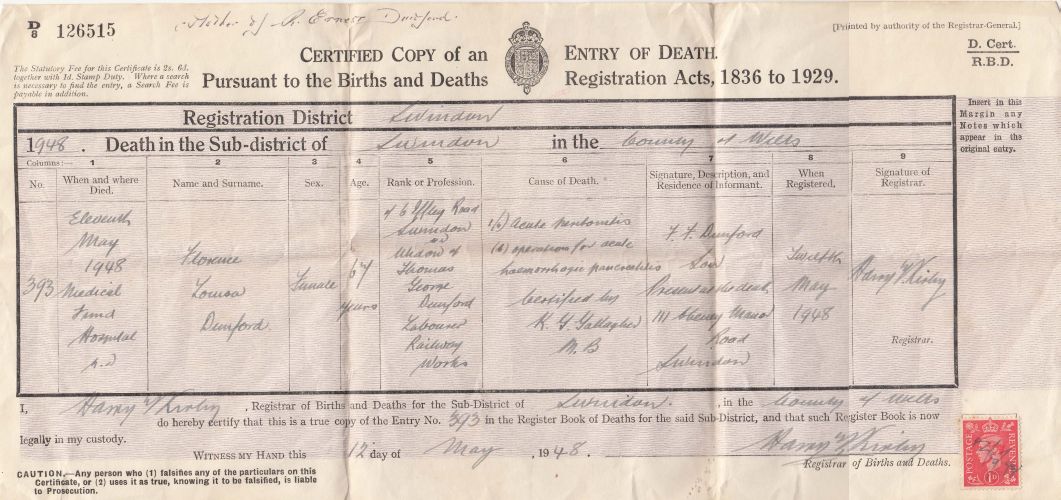 D/8 126515
Mother of R. Ernest Dunford.
[Printed by authority of the Registrar-General.]
CERTIFIED COPY OF AN ENTRY OF DEATH.
D. Cert.
R.B.D.
The Statutory Fee for this Certificate is 2s. 6d.
together with 1d. Stamp Duty. Where a search
is necessary to find the entry, a Search Fee is
payable in addition.
Pursuant to the Births and Deaths Registration Acts, 1836 to 1929.
Registration District Swindon
Insert in this
Margin any
Notes which
appear in the
original entry.
1948. Death in the Sub-district of Swindon in the County of Wilts
Columns:— 1 2 3 4 5 6 7 8 9
No. When and where Died. Name and Surname. Sex. Age. Rank or Profession. Cause of Death. Signature, Description, and Residence of Informant. When Registered. Signature of Registrar.
393
Eleventh
May
1948
Medical
Fund
Hospital
Florence
Louisa
Dunford
Female
67
years
of 6 Iffley Road
Swindon
Widow of
Thomas
George
Dunford
Labourer
Railway
Works
Acute peritonitis
operation for acute
haemorrhagic pancreatitis
Certified by
K. G. Gallagher
M.B
F. F. Dunford
Son
Present at the death
111 Cheney Manor
Road
Swindon
Twelfth
May
1948
Harry W Kirby
Registrar.
I, Harry W Kirby, Registrar of Births and Deaths for the Sub-District of Swindon, in the County of Wilts
do hereby certify that this is a true copy of the Entry No. 393 in the Register Book of Deaths for the said Sub-District, and that such Register Book is now
legally in my custody.
WITNESS MY HAND this 12 day of May, 1948.
Harry W Kirby
Registrar of Births and Deaths.
CAUTION.—Any person who (1) falsifies any of the particulars on this
Certificate, or (2) uses it as true, knowing it to be falsified, is liable
to Prosecution.
POSTAGE
REVENUE
1D